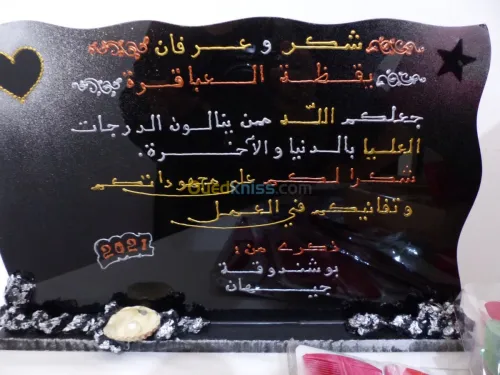 شكر و عرفان
يقظة العباقرة
جعلكم اللّه ممن ينالون الدرجات
العليا بالدنيا والآخرة.
شكرا لكم على مجهوداتكم
وتفانيكم في العمل
ذكرى من:
بوشندوقة
جيهان
2021
Ouedkniss.com